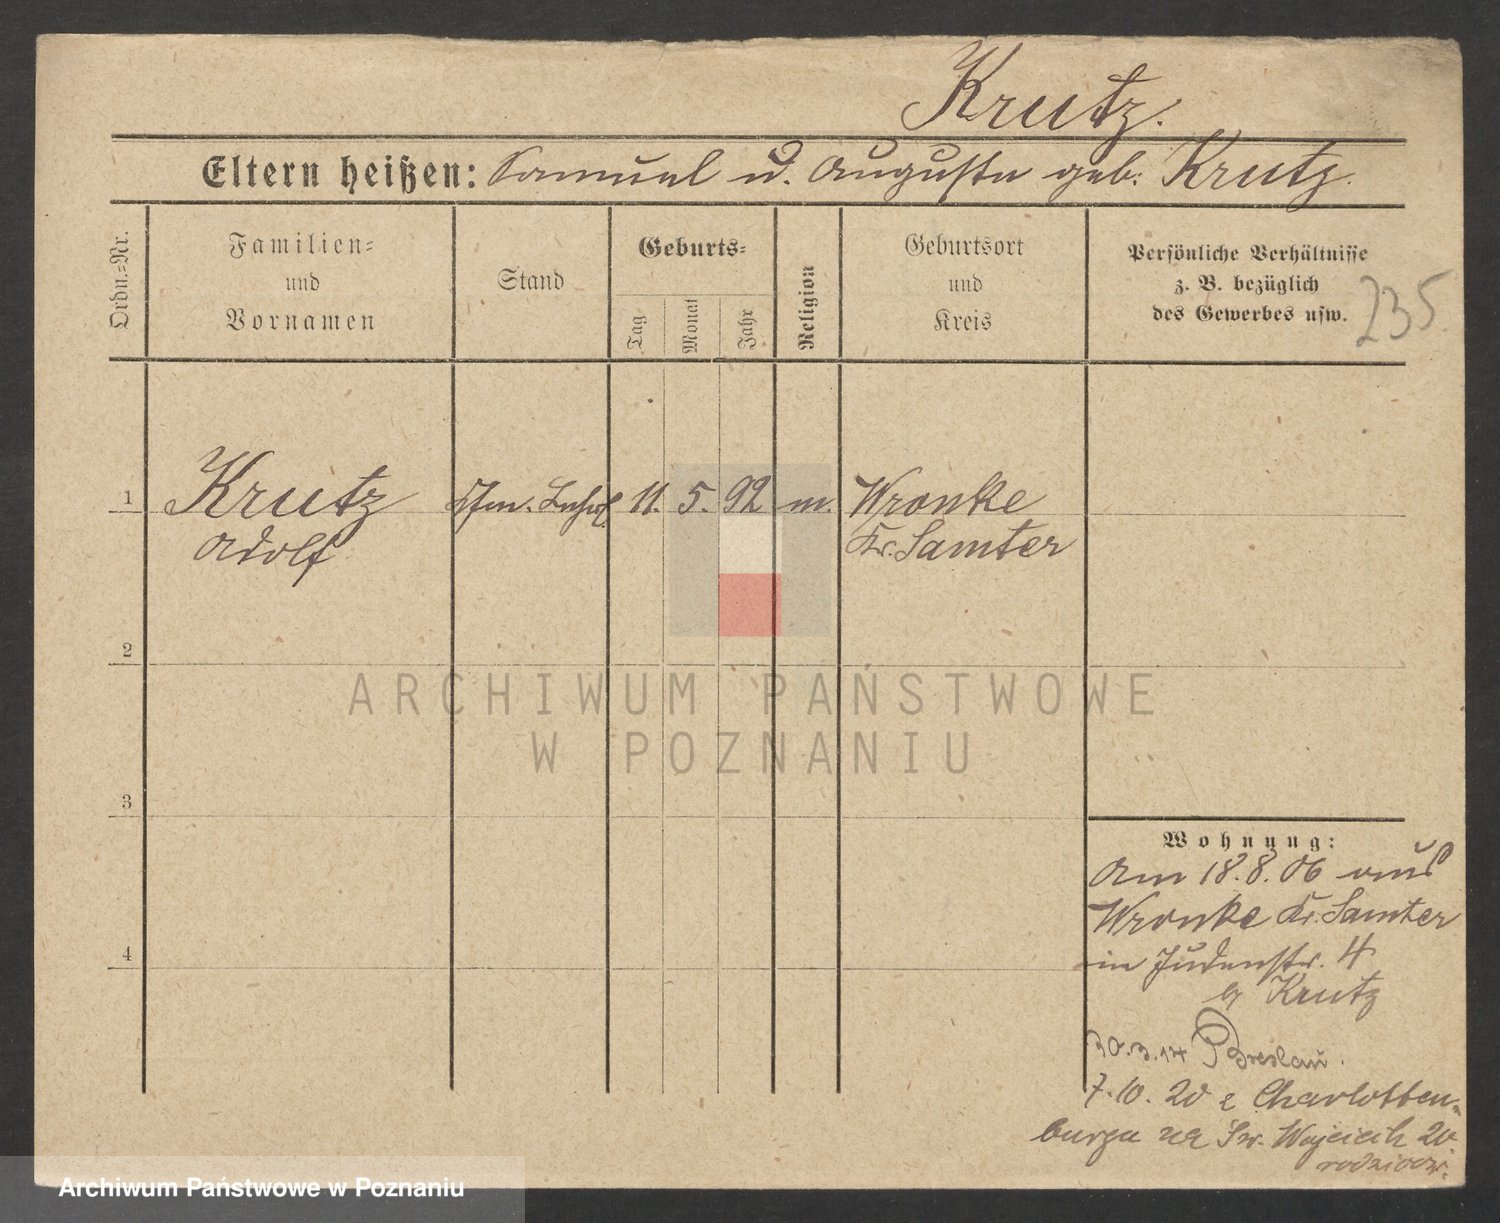 Krutz.
Eltern heißen: Samuel u. Auguste geb. Krutz.
Ordn.=Nr.
Familien=
und
Vornamen
Stand
Geburts=
Tag
Monat
Jahr
Religion
Geburtsort
und
Kreis
Persönliche Verhältnisse
z. B. bezüglich
des Gewerbes usw.
235
1 Krutz Kfm. Lehrl. 11. 5. 92 m. Wronke
Adolf Kr. Samter
2
ARCHIWUM PAŃSTWOWE
W POZNANIU
3
4
Wohnung:
Am 18.8.06 aus
Wronke Kr. Samter
in Judenstr. 4
b/ Krutz
30.3.14 Breslau.
7.10. 20 z Charlotten-
burga na Św. Wojciech 20
rodziców.
Archiwum Państwowe w Poznaniu